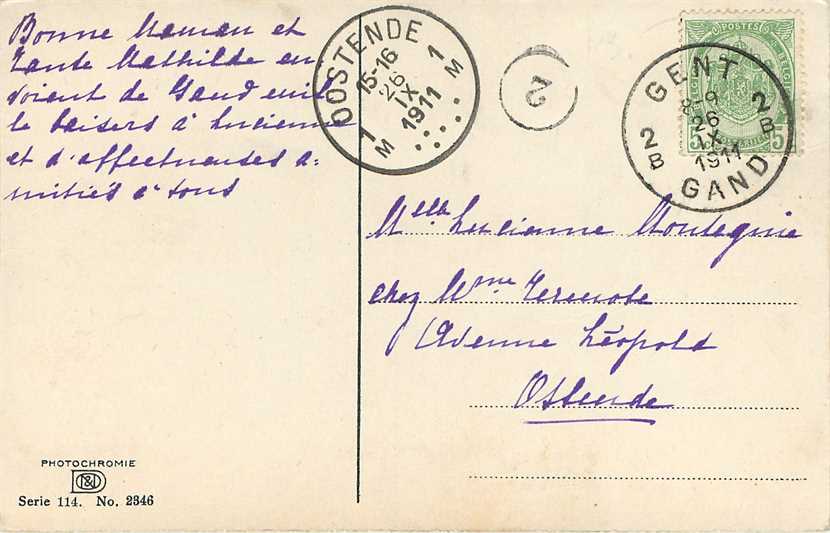 Bonne Maman et
Tante Mathilde en
voient de Gand mil
le baisers à Lucienne
et d'affectueuses a-
mitiés à tous
OOSTENDE
15-16
26
IX
1911
1 M
1 M
2
POSTES
GENT
8-9
26
IX
1911
2 B
2 B
GAND
5
5
Melle Lucienne Montegnie
chez Mme Termote
Avenue Léopold
Ostende
PHOTOCHROMIE
Serie 114. No. 2346